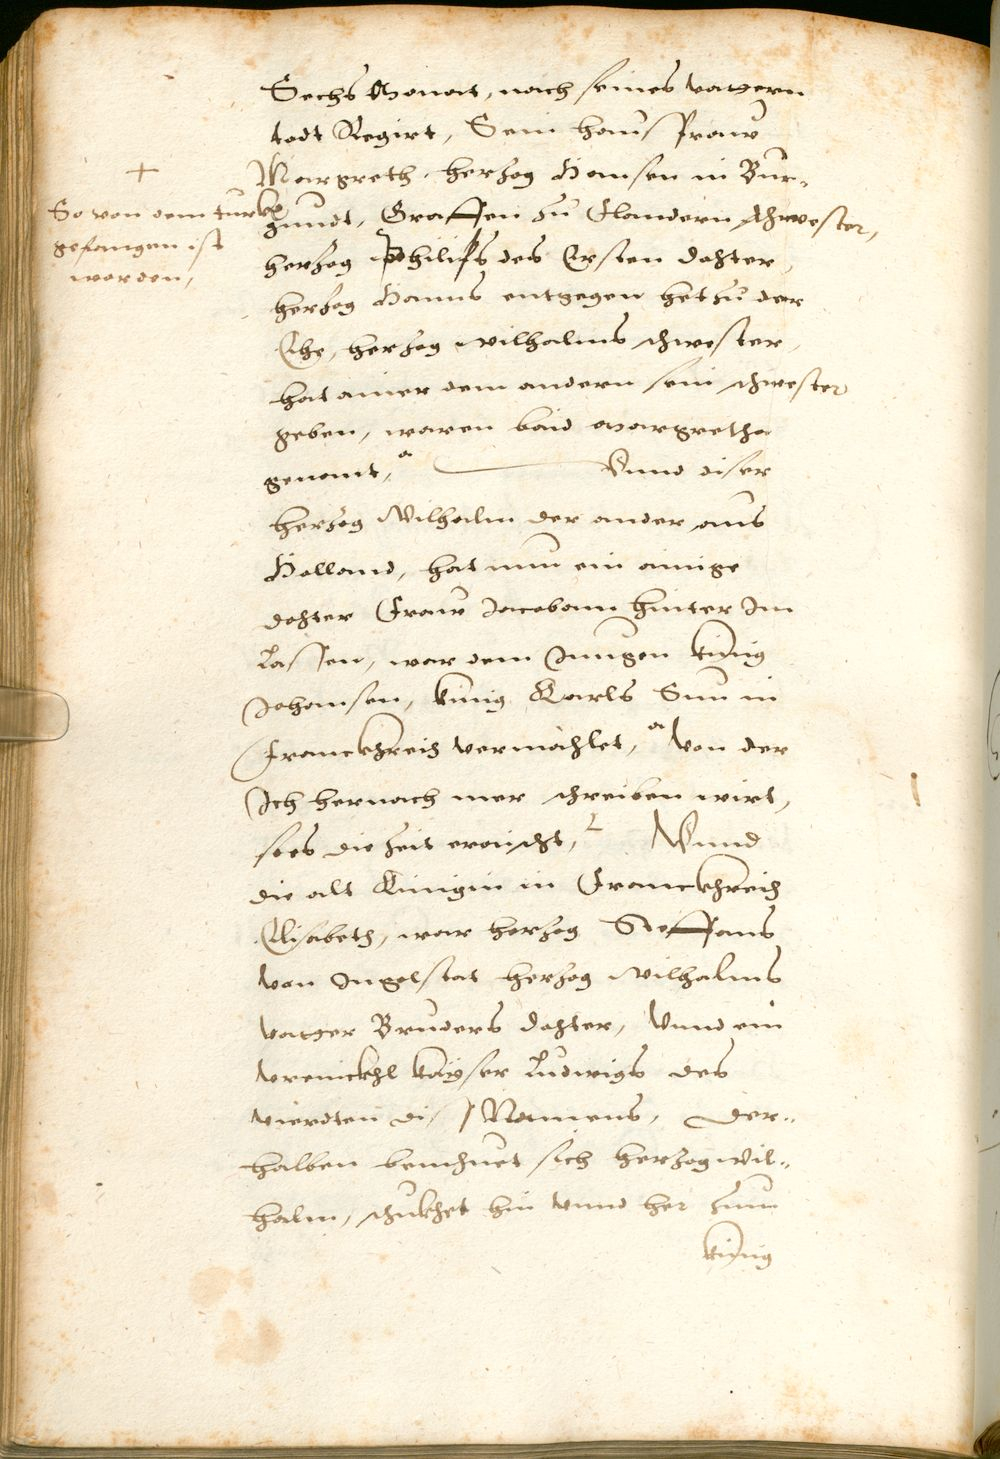 Sechs Monat, nach seines vattern
todt Regirt, Sein hausfraw
Margreth, hertzog Hansen in Bur-
+
So von dem turkhen
gefangen ist
worden,
gundt, Graffen zu Flandern schwester,
hertzog Philips des Ersten dohter,
hertzog Hanns entgegen het zu der
Ehe, hertzog wilhalms schwester,
hat ainer dem andern sein schwester
geben, waren baid Margretha
genant, Vnnd diser
hertzog Wilhalm der ander aus
Holland, hat nun ein ainige
dohter Fraw Jacobann hinter Im
Lassen, war dem Jungen künig
Johansen, künig Karls Sun in
Franckhreich vermählet, Von der
Ich hernach mer schreiben wirt,
so es die zeit eraischt, Vnnd
die alt Künigin in Franckhreich
Elisabeth, war hertzog Steffans
von Ingelstat hertzog wilhalms
vatter Bruders dohter, Vnnd ein
vrenickhl kayser Ludwigs des
vierdten dis Namens, Der-
halben bemhuet sich hertzog wil-
halm, schukhet hin vnnd her zum
künig